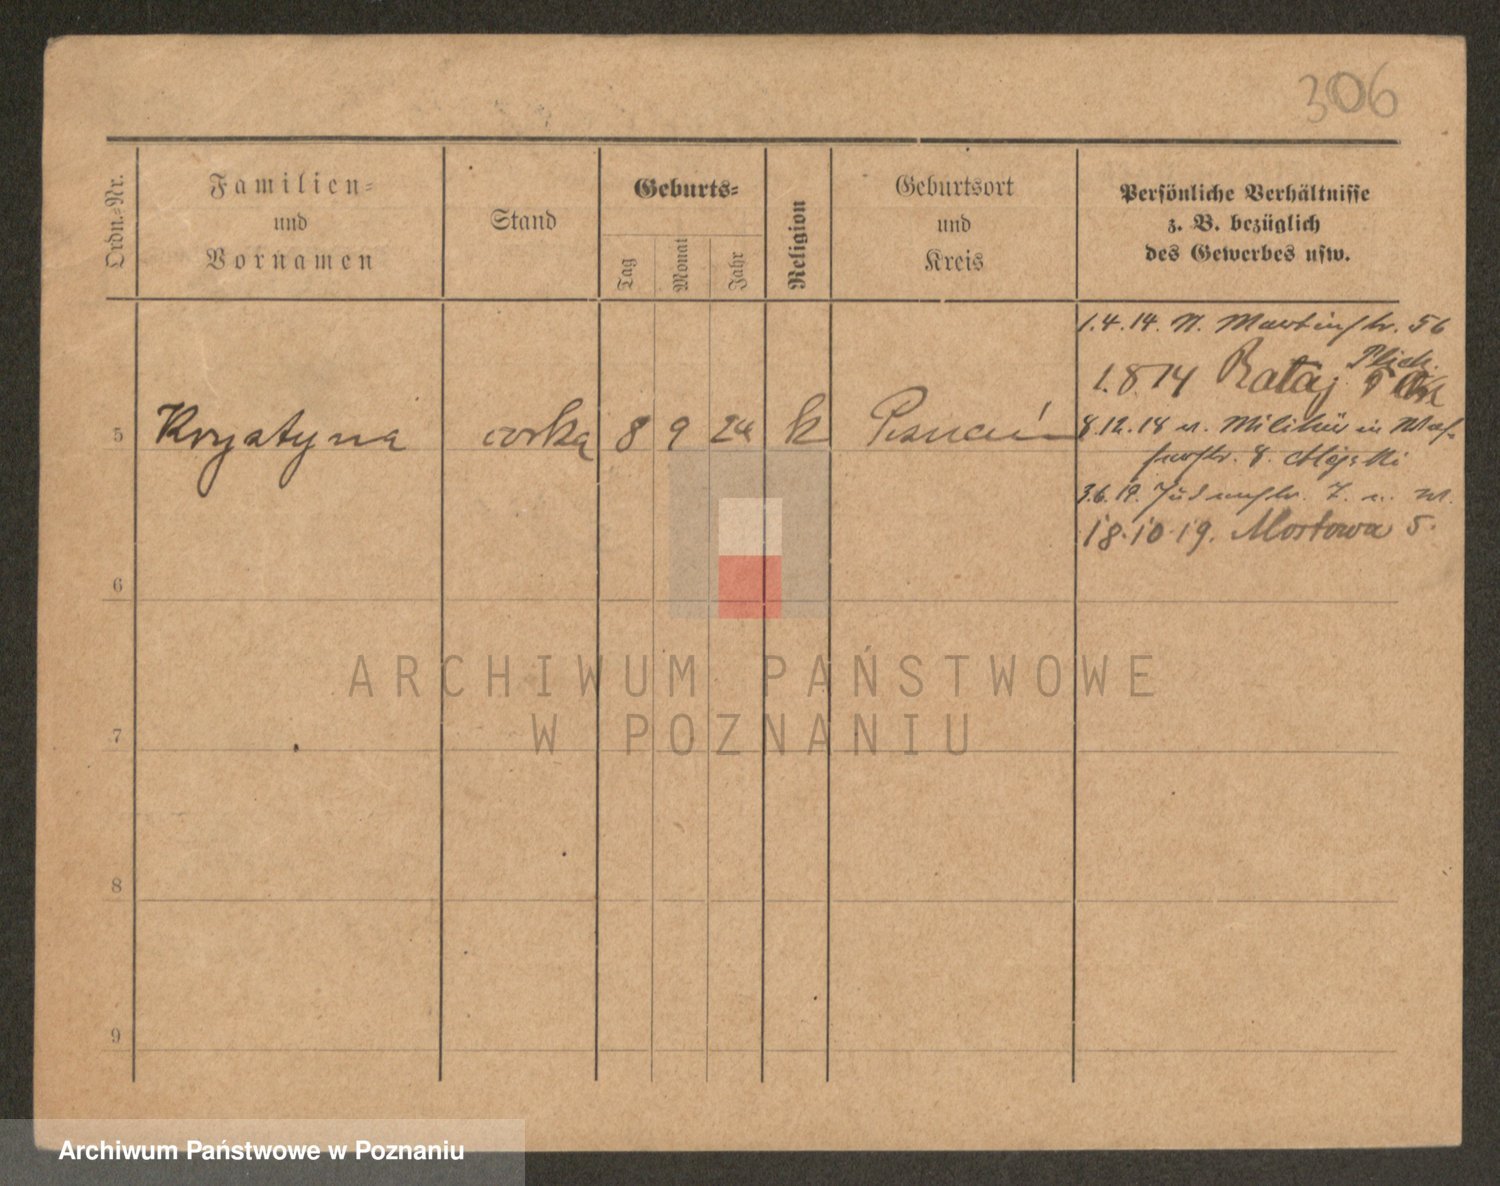 306
Ordn.-Nr.
Familien-
und
Vornamen
Stand
Geburts-
Tag
Monat
Jahr
Religion
Geburtsort
und
Kreis
Persönliche Verhältnisse
z. B. bezüglich
des Gewerbes usw.
1.4.14. N. Martinstr. 56
1.8.14 Rataj
8.12.18 Militär in
8.
3.6.19. Judenstr. 7.
18.10.19. Mostowa 5.
5 Krystyna córka 8 9 24 k Poznań
6
7
8
9
ARCHIWUM PAŃSTWOWE
W POZNANIU
Archiwum Państwowe w Poznaniu